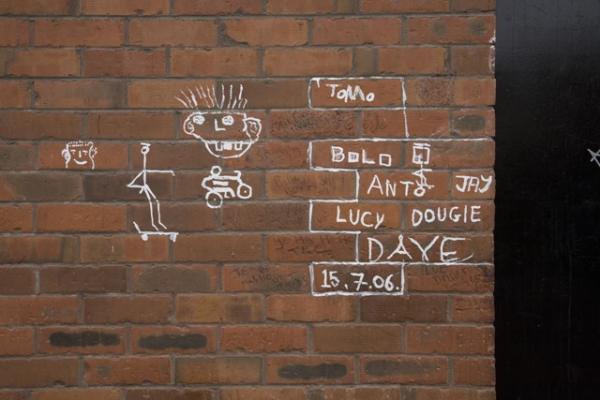 TOMO
BOLO
ANTO JAY
LUCY DOUGIE
DAVE
15.7.06.